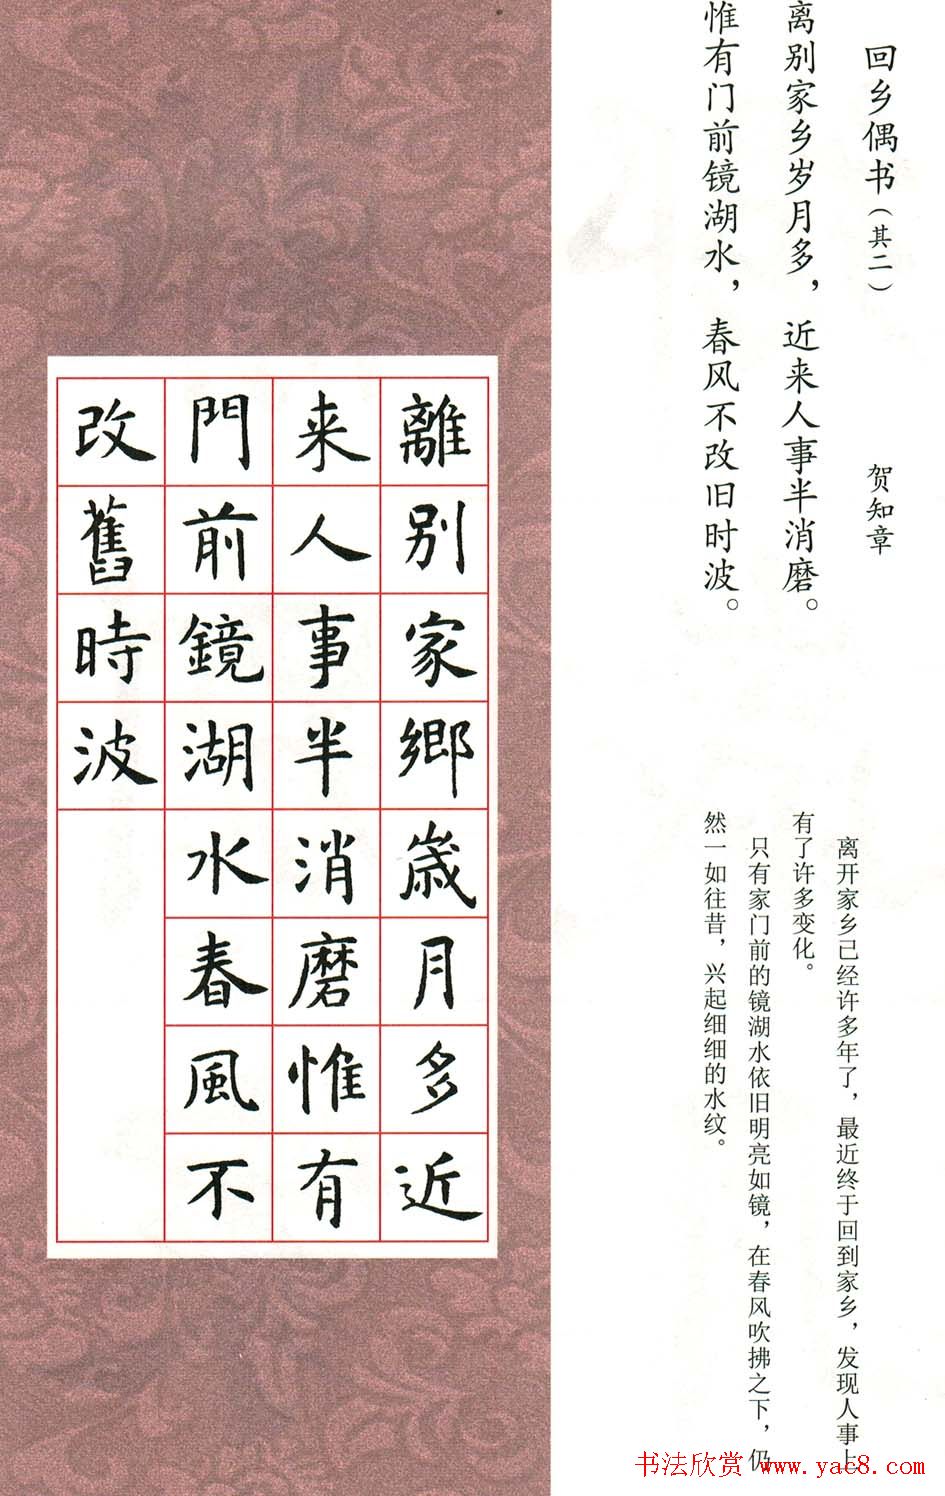 回乡偶书（其二） 贺知章
离别家乡岁月多，近来人事半消磨。
惟有门前镜湖水，春风不改旧时波。
离开家乡已经许多年了，最近终于回到家乡，发现人事上
有了许多变化。
只有家门前的镜湖水依旧明亮如镜，在春风吹拂之下，仍
然一如往昔，兴起细细的水纹。
離別家鄉歲月多近
来人事半消磨惟有
門前鏡湖水春風不
改舊時波
书法欣赏 www.yac8.com